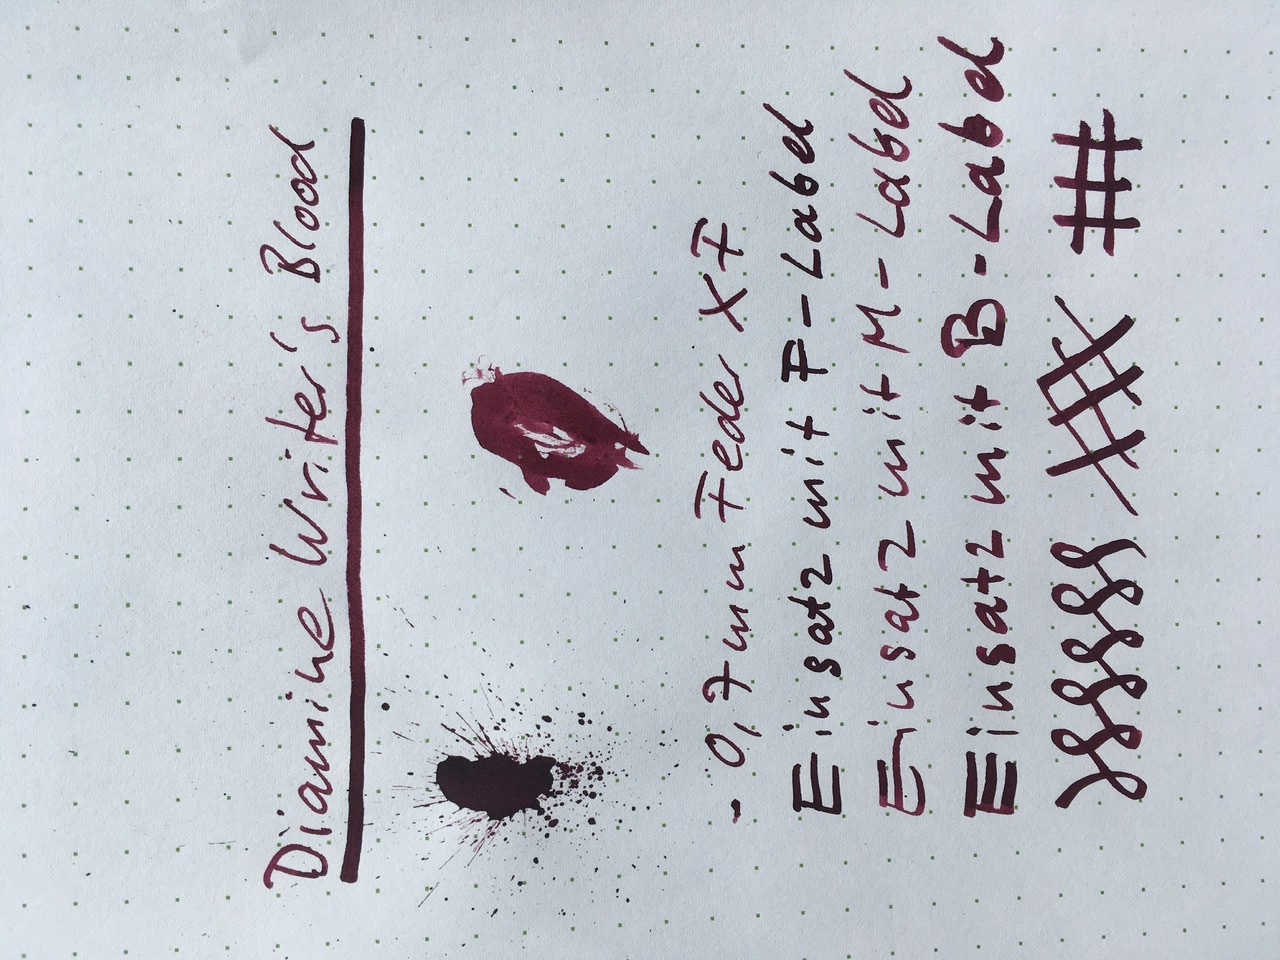 Diamine Writer's Blood
- 0,7mm Feder XF
Einsatz mit F-Label
Einsatz mit M-Label
Einsatz mit B-Label